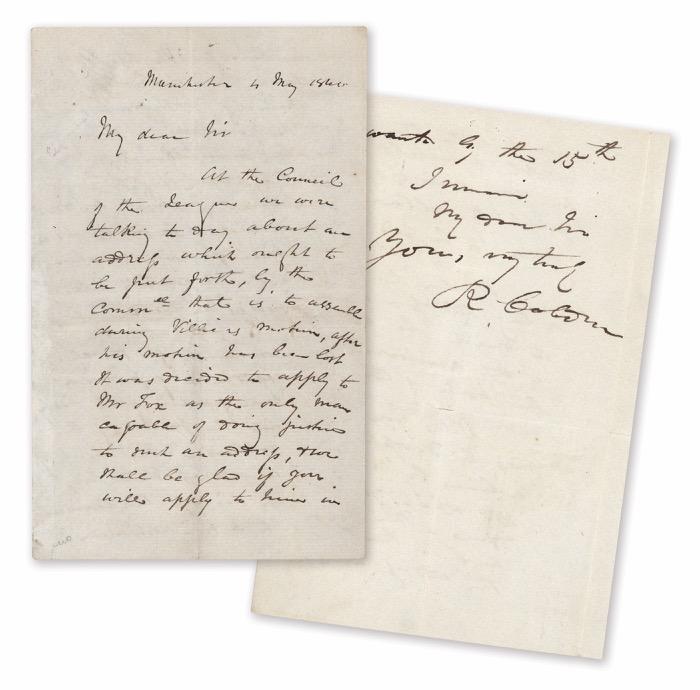 Manchester 4 May 1840
My dear Sir
At the Council
of the League we were
talking to day about an
address which ought to
be put forth, by the
Commee that is to assemble
during Villiers motion, after
his motion has been lost
It was decided to apply to
Mr Fox as the only man
capable of doing justice
to such an address, & we
shall be glad if you
will apply to him in
by the 15th
I remain
My dear Sir
Yours, very truly
R. Cobden